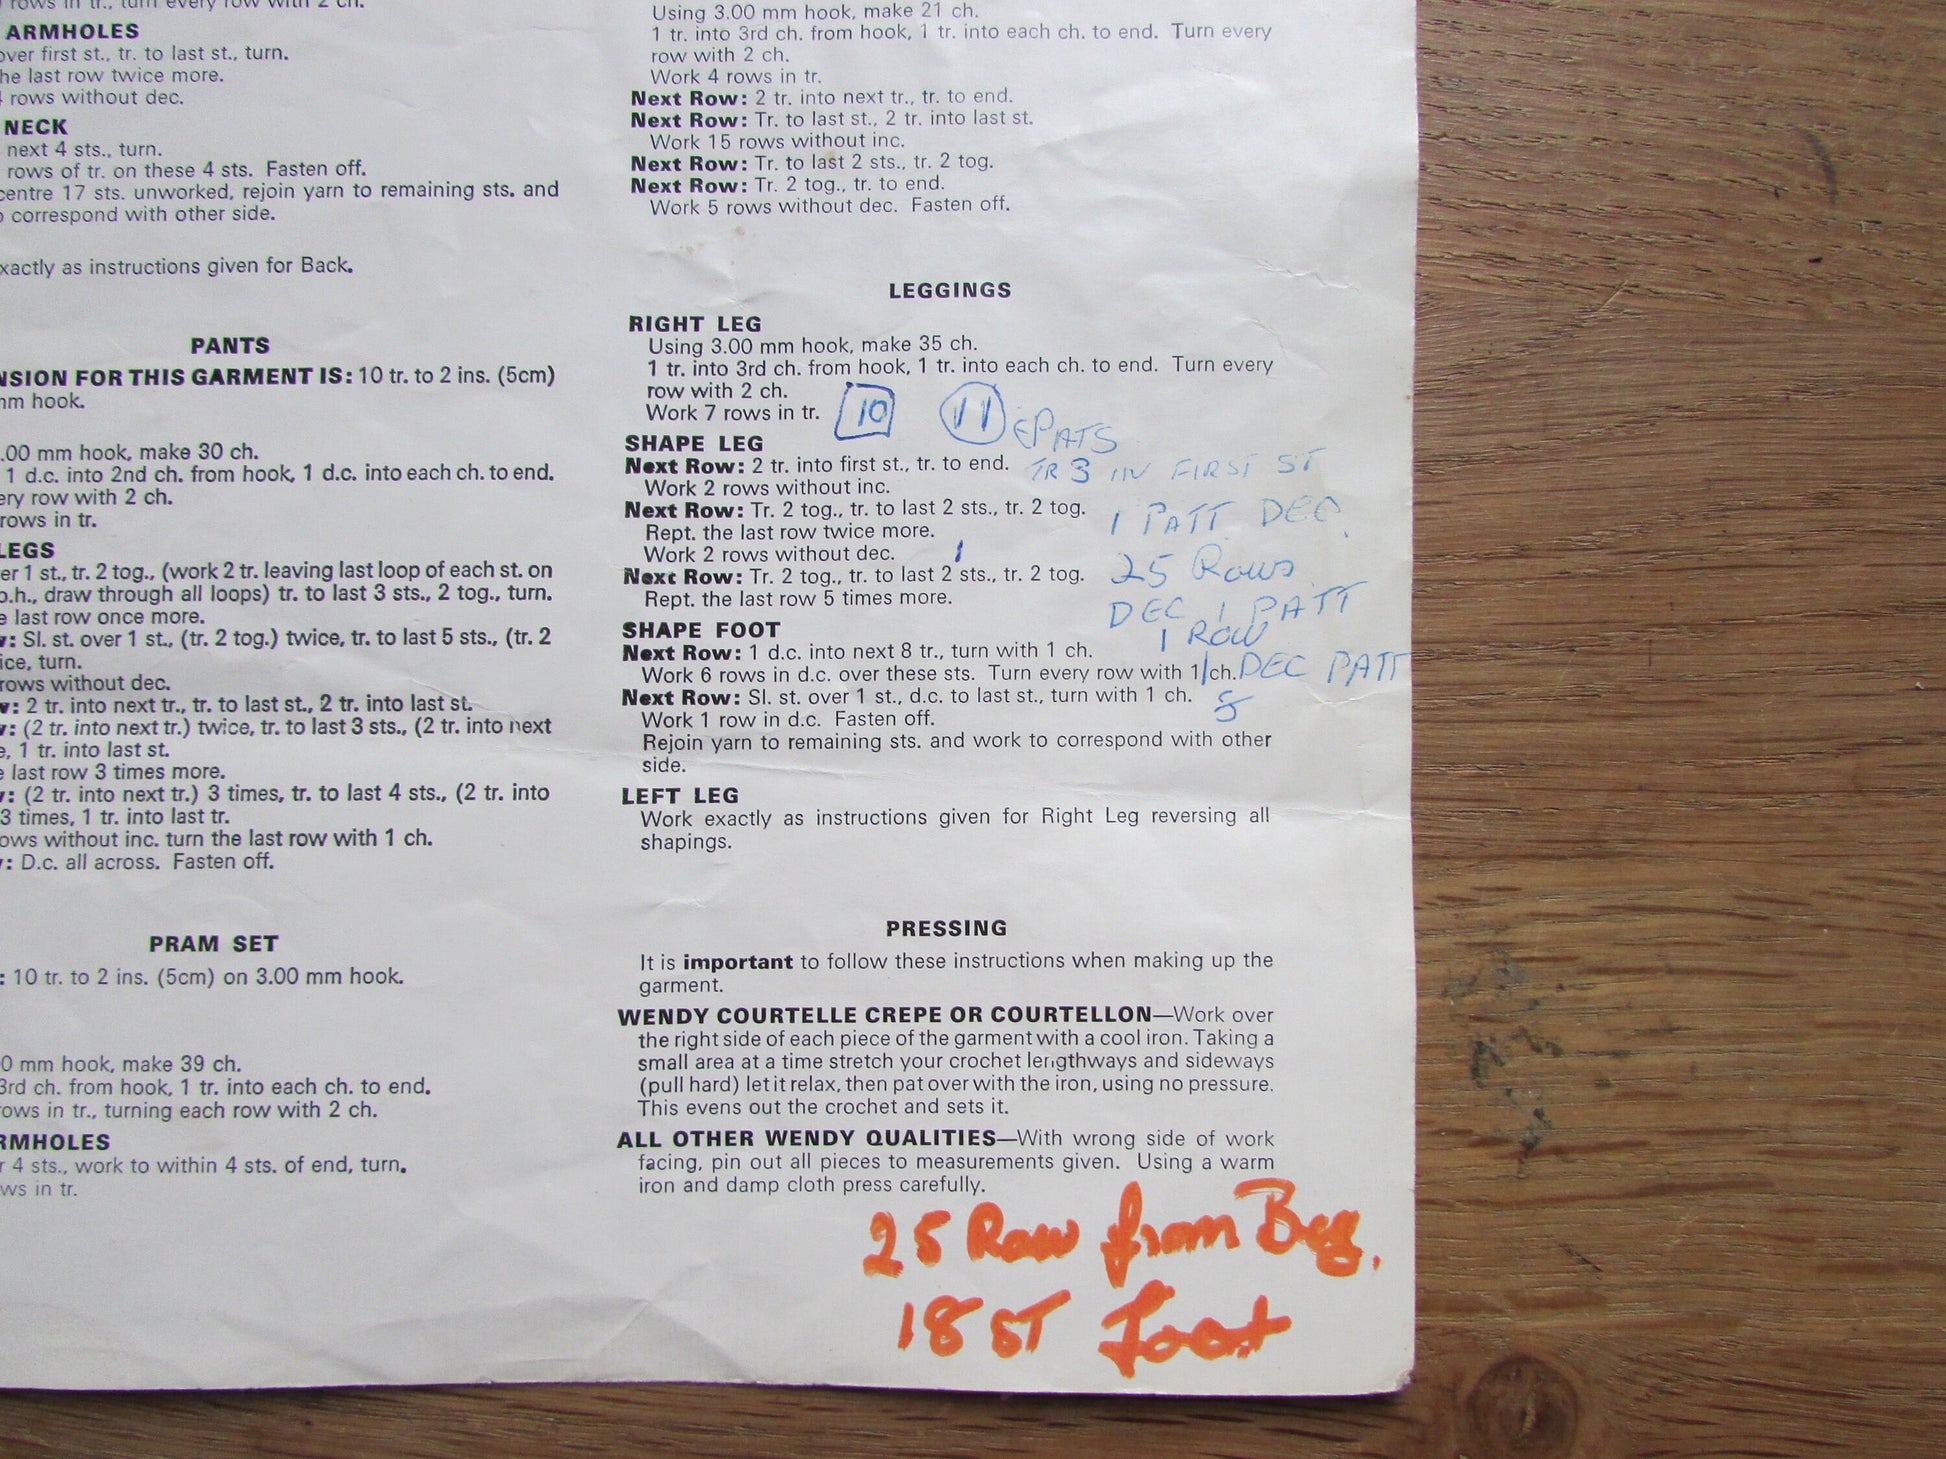 rows in tr., turn every row with 2 ch.
ARMHOLES
over first st., tr. to last st., turn.
he last row twice more.
rows without dec.
NECK
next 4 sts., turn.
rows of tr. on these 4 sts. Fasten off.
centre 17 sts. unworked, rejoin yarn to remaining sts. and
o correspond with other side.
xactly as instructions given for Back.
PANTS
NSION FOR THIS GARMENT IS: 10 tr. to 2 ins. (5cm)
mm hook.
.00 mm hook, make 30 ch.
1 d.c. into 2nd ch. from hook, 1 d.c. into each ch. to end.
ery row with 2 ch.
rows in tr.
LEGS
er 1 st., tr. 2 tog., (work 2 tr. leaving last loop of each st. on
o.h., draw through all loops) tr. to last 3 sts., 2 tog., turn.
e last row once more.
: Sl. st. over 1 st., (tr. 2 tog.) twice, tr. to last 5 sts., (tr. 2
ice, turn.
rows without dec.
: 2 tr. into next tr., tr. to last st., 2 tr. into last st.
: (2 tr. into next tr.) twice, tr. to last 3 sts., (2 tr. into next
e, 1 tr. into last st.
e last row 3 times more.
: (2 tr. into next tr.) 3 times, tr. to last 4 sts., (2 tr. into
3 times, 1 tr. into last tr.
ows without inc. turn the last row with 1 ch.
: D.c. all across. Fasten off.
PRAM SET
: 10 tr. to 2 ins. (5cm) on 3.00 mm hook.
0 mm hook, make 39 ch.
3rd ch. from hook, 1 tr. into each ch. to end.
ows in tr., turning each row with 2 ch.
RMHOLES
r 4 sts., work to within 4 sts. of end, turn.
ws in tr.
Using 3.00 mm hook, make 21 ch.
1 tr. into 3rd ch. from hook, 1 tr. into each ch. to end. Turn every
row with 2 ch.
Work 4 rows in tr.
Next Row: 2 tr. into next tr., tr. to end.
Next Row: Tr. to last st., 2 tr. into last st.
Work 15 rows without inc.
Next Row: Tr. to last 2 sts., tr. 2 tog.
Next Row: Tr. 2 tog., tr. to end.
Work 5 rows without dec. Fasten off.
LEGGINGS
RIGHT LEG
Using 3.00 mm hook, make 35 ch.
1 tr. into 3rd ch. from hook, 1 tr. into each ch. to end. Turn every
row with 2 ch.
Work 7 rows in tr. 10 11 PATS
SHAPE LEG
Next Row: 2 tr. into first st., tr. to end. TR 3 IN FIRST ST
Work 2 rows without inc.
Next Row: Tr. 2 tog., tr. to last 2 sts., tr. 2 tog. 1 PATT DEC.
Rept. the last row twice more.
Work 2 rows without dec. 1 25 Rows
Next Row: Tr. 2 tog., tr. to last 2 sts., tr. 2 tog.
Rept. the last row 5 times more. DEC 1 PATT
SHAPE FOOT 1 ROW
Next Row: 1 d.c. into next 8 tr., turn with 1 ch.
Work 6 rows in d.c. over these sts. Turn every row with 1 ch. DEC PATT
Next Row: Sl. st. over 1 st., d.c. to last st., turn with 1 ch. 5
Work 1 row in d.c. Fasten off.
Rejoin yarn to remaining sts. and work to correspond with other
side.
LEFT LEG
Work exactly as instructions given for Right Leg reversing all
shapings.
PRESSING
It is important to follow these instructions when making up the
garment.
WENDY COURTELLE CREPE OR COURTELLON—Work over
the right side of each piece of the garment with a cool iron. Taking a
small area at a time stretch your crochet lengthways and sideways
(pull hard) let it relax, then pat over with the iron, using no pressure.
This evens out the crochet and sets it.
ALL OTHER WENDY QUALITIES—With wrong side of work
facing, pin out all pieces to measurements given. Using a warm
iron and damp cloth press carefully.
25 Row from Beg.
18 ST Foot